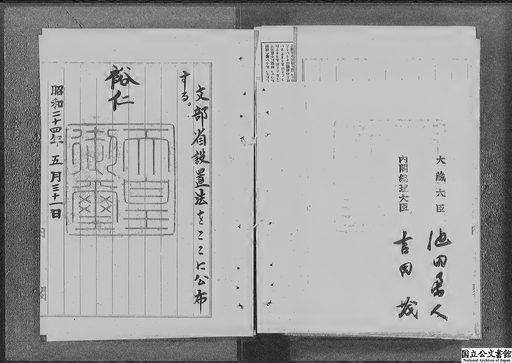 大藏大臣 池田勇人
内閣総理大臣 吉田茂
文部省設置法をここに公布
する。
裕仁
天皇
御璽
昭和二十四年五月三十一日
国立公文書館
National Archives of Japan